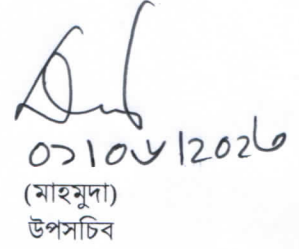 ০১|০৬|২০২৬
(মাহমুদা)
উপসচিব